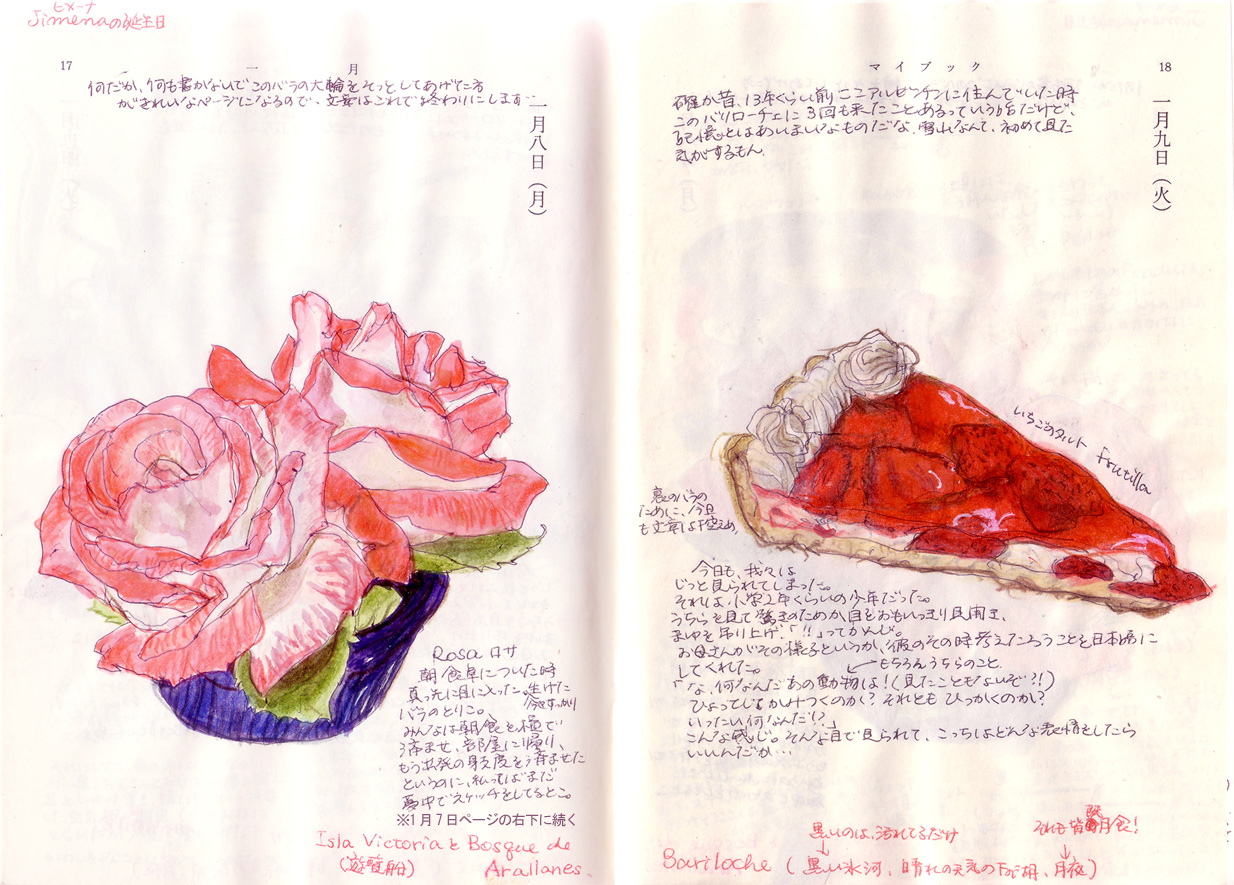 ヒメーナ
Jimenaの誕生日
17
一月
何だか、何も書かないでこのバラの大輪をそっとしてあげた方
がきれいなページになるので、文章はこれで終わりにします…
一月八日(月)
Rosa ロサ
朝食卓についた時
真っ先に目に入った。生けた
バラのとりこ。
今やすっかり
みんなは朝食を極で
済ませ、部屋に帰り、
もう出発の身支度を済ませた
というのに、私ってばまだ
夢中でスケッチをしてるとこ。
※1月7日ページの右下に続く
Isla Victoriaと Bosque de
(遊覧船) Arallanes.
マイブック
18
確か昔、13年くらい前ここアルゼンチンに住んでいた時
このバリローチェに3回も来たことあるっていうはずだけど、
記憶とはあいまいなものだな。雪山なんて、初めて見た
気がするもん。
一月九日(火)
いちごのタルト Frutilla
裏のバラの
ために、今日
も文章は下控えめ。
今日も、我々は
じっと見られてしまった。
それは、小学2年くらいの少年だった。
うちらを見て驚きのためか、目をおもいっきり見開き、
まゆを吊り上げ、「!!」ってかんじ。
お母さんがその様子というか、彼のその時考えたろうことを日本語に
してくれた。
もちろんうちらのこと。
「な、何なんだあの動物は!(見たこともないぞ?!)
ひょっとしてかみつくのか?それともひっかくのか?
いったい何なんだ!?」
こんな感じ。そんな目で見られて、こっちはどんな表情をしたら
いいんだか…
黒いのは、汚れてるだけ
それも皆既月食!
Bariloche (黒い氷河、晴れの天気の下の湖、月夜)